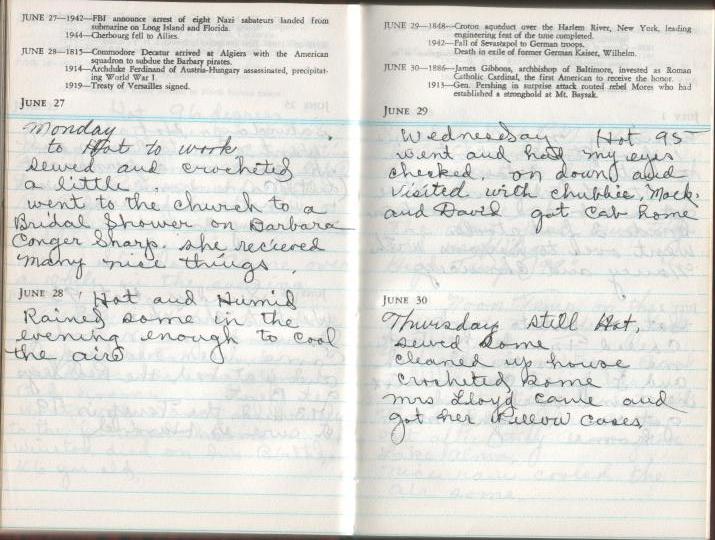 JUNE 27—1942—FBI announce arrest of eight Nazi sabateurs landed from
submarine on Long Island and Florida.
1944—Cherbourg fell to Allies.
JUNE 28—1815—Commodore Decatur arrived at Algiers with the American
squadron to subdue the Barbary pirates.
1914—Archduke Ferdinand of Austria-Hungary assassinated, precipitat-
ing World War I.
1919—Treaty of Versailles signed.
JUNE 27
Monday
to Hot to work
sewed and crocheted
a little.
went to the church to a
Bridal Shower on Barbara
Conger Sharp. she recieved
many nice things.
JUNE 28
Hot and Humid
Rained some in the
evening enough to cool
the air
JUNE 29—1848—Croton aqueduct over the Harlem River, New York, leading
engineering feat of the time completed.
1942—Fall of Sevastapol to German troops.
Death in exile of former German Kaiser, Wilhelm.
JUNE 30—1886—James Gibbons, archbishop of Baltimore, invested as Roman
Catholic Cardinal, the first American to receive the honor.
1913—Gen. Pershing in surprise attack routed rebel Mores who had
established a stronghold at Mt. Baysak.
JUNE 29
Wednesday Hot 95
went and had my eyes
checked. on down and
visited with chubbie, Mack,
and David got cab home
JUNE 30
Thursday still Hot,
sewed some
cleaned up house
crocheted some
mrs Lloyd came and
got her Pillow cases,